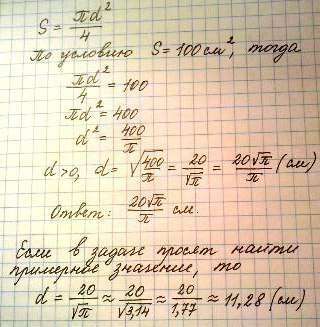 S = πd²/4
По условию S = 100 см², тогда
πd²/4 = 100
πd² = 400
d² = 400/π
d>0, d = √(400/π) = 20/√π = 20√π/π (см)
Ответ: 20√π/π см.
Если в задаче просят найти
примерное значение, то
d = 20/√π ≈ 20/√3,14 ≈ 20/1,77 ≈ 11,28 (см)